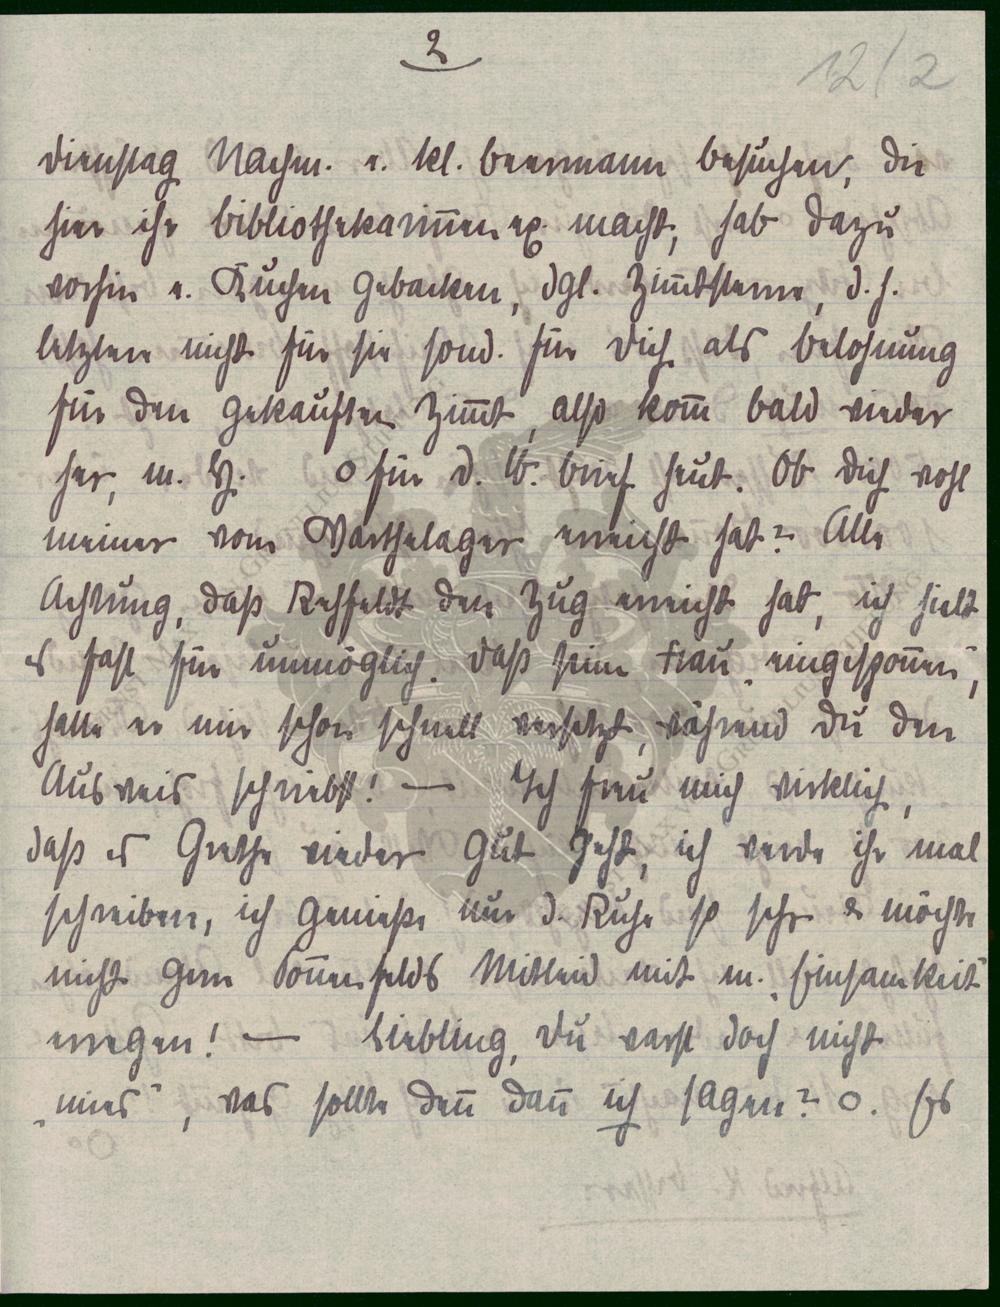 2
12/2
Dienstag Nachm. e. kl. Beermann besuchen, die
hier ihr Bibliothekarinnenex. macht, hab dazu
vorhin e. Kuchen gebacken, dgl. Zimtsterne, d. h.
letztere nicht für sie sond. für Dich als Belohnung
für den gekauften Zim̅t, also kom̅ bald wieder
her, m. H. o für d. lb. Brief heut. Ob Dich wohl
meiner vom Warthelager erreicht hat? Alle
Achtung, daß Rehfeldt den Zug erreicht hat, ich hielt
es fast für unmöglich. Daß seine Frau „eingespon̅en",
hatte er mir schon schnell versetzt, während Du den
Ausweis schriebst! — Ich freu mich wirklich,
daß es Grethe wieder gut geht, ich werde ihr mal
schreiben, ich genieße nur d. Ruhe so sehr & möchte
nicht gern Son̅enfelds Mitleid mit m. „Einsamkeit"
erregen! — Liebling, Du warst doch nicht
„mies", was sollte den̅ dan̅ ich sagen? o. Es